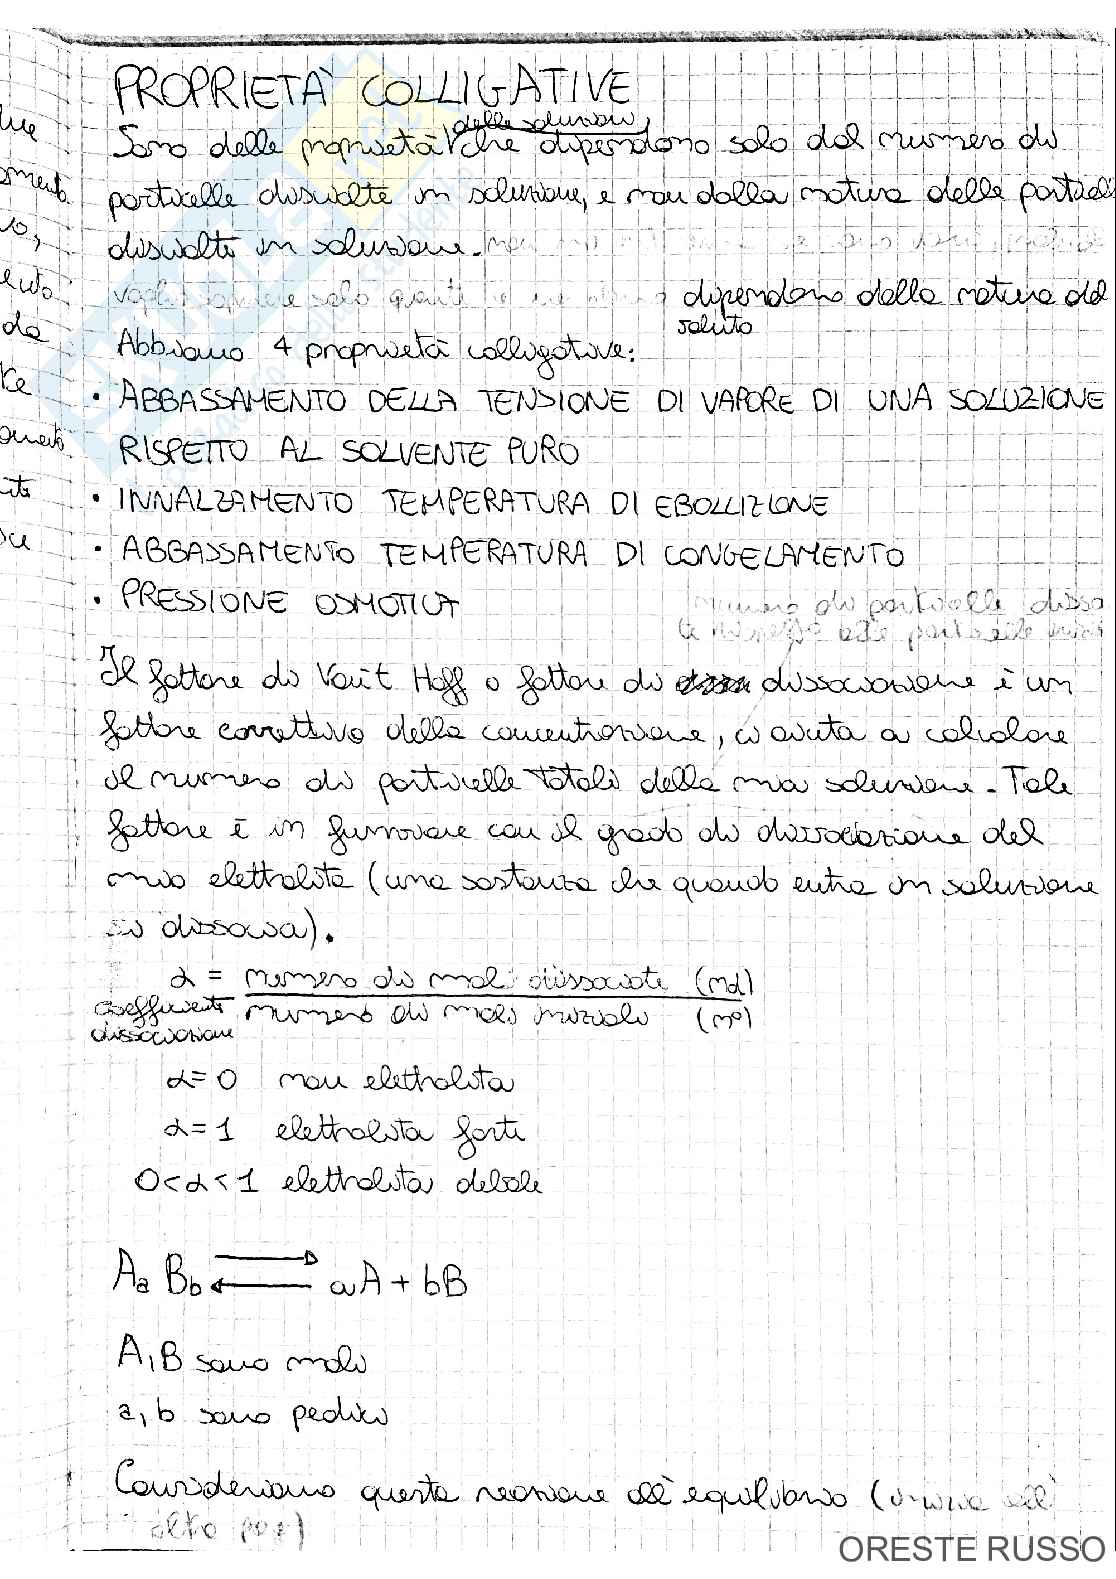 PROPRIETÀ COLLIGATIVE
delle soluzioni,
Sono delle proprietà che dipendono solo dal numero di
particelle disciolte in soluzione, e non dalla natura delle particelle
disciolte in soluzione.
solo quante dipendono dalla natura del
soluto
Abbiamo 4 proprietà colligative:
• ABBASSAMENTO DELLA TENSIONE DI VAPORE DI UNA SOLUZIONE
RISPETTO AL SOLVENTE PURO
• INNALZAMENTO TEMPERATURA DI EBOLLIZIONE
• ABBASSAMENTO TEMPERATURA DI CONGELAMENTO
• PRESSIONE OSMOTICA
numero di particelle disso
Il fattore di Van't Hoff o fattore di dissociazione è un
fattore correttivo della concentrazione, ci aiuta a calcolare
il numero di particelle totali della mia soluzione. Tale
fattore è in funzione con il grado di dissociazione del
mio elettrolita (una sostanza che quando entra in soluzione
si dissocia).
α = numero di moli dissociate (nd)
coefficiente numero di moli iniziali (n°)
dissociazione
α=0 non elettrolita
α=1 elettrolita forte
0<α<1 elettrolita debole
Aa Bb ⇄ aA + bB
A, B sono moli
a, b sono pedici
Consideriamo questa reazione all'equilibrio (inizia all'
altra pag)
ORESTE RUSSO